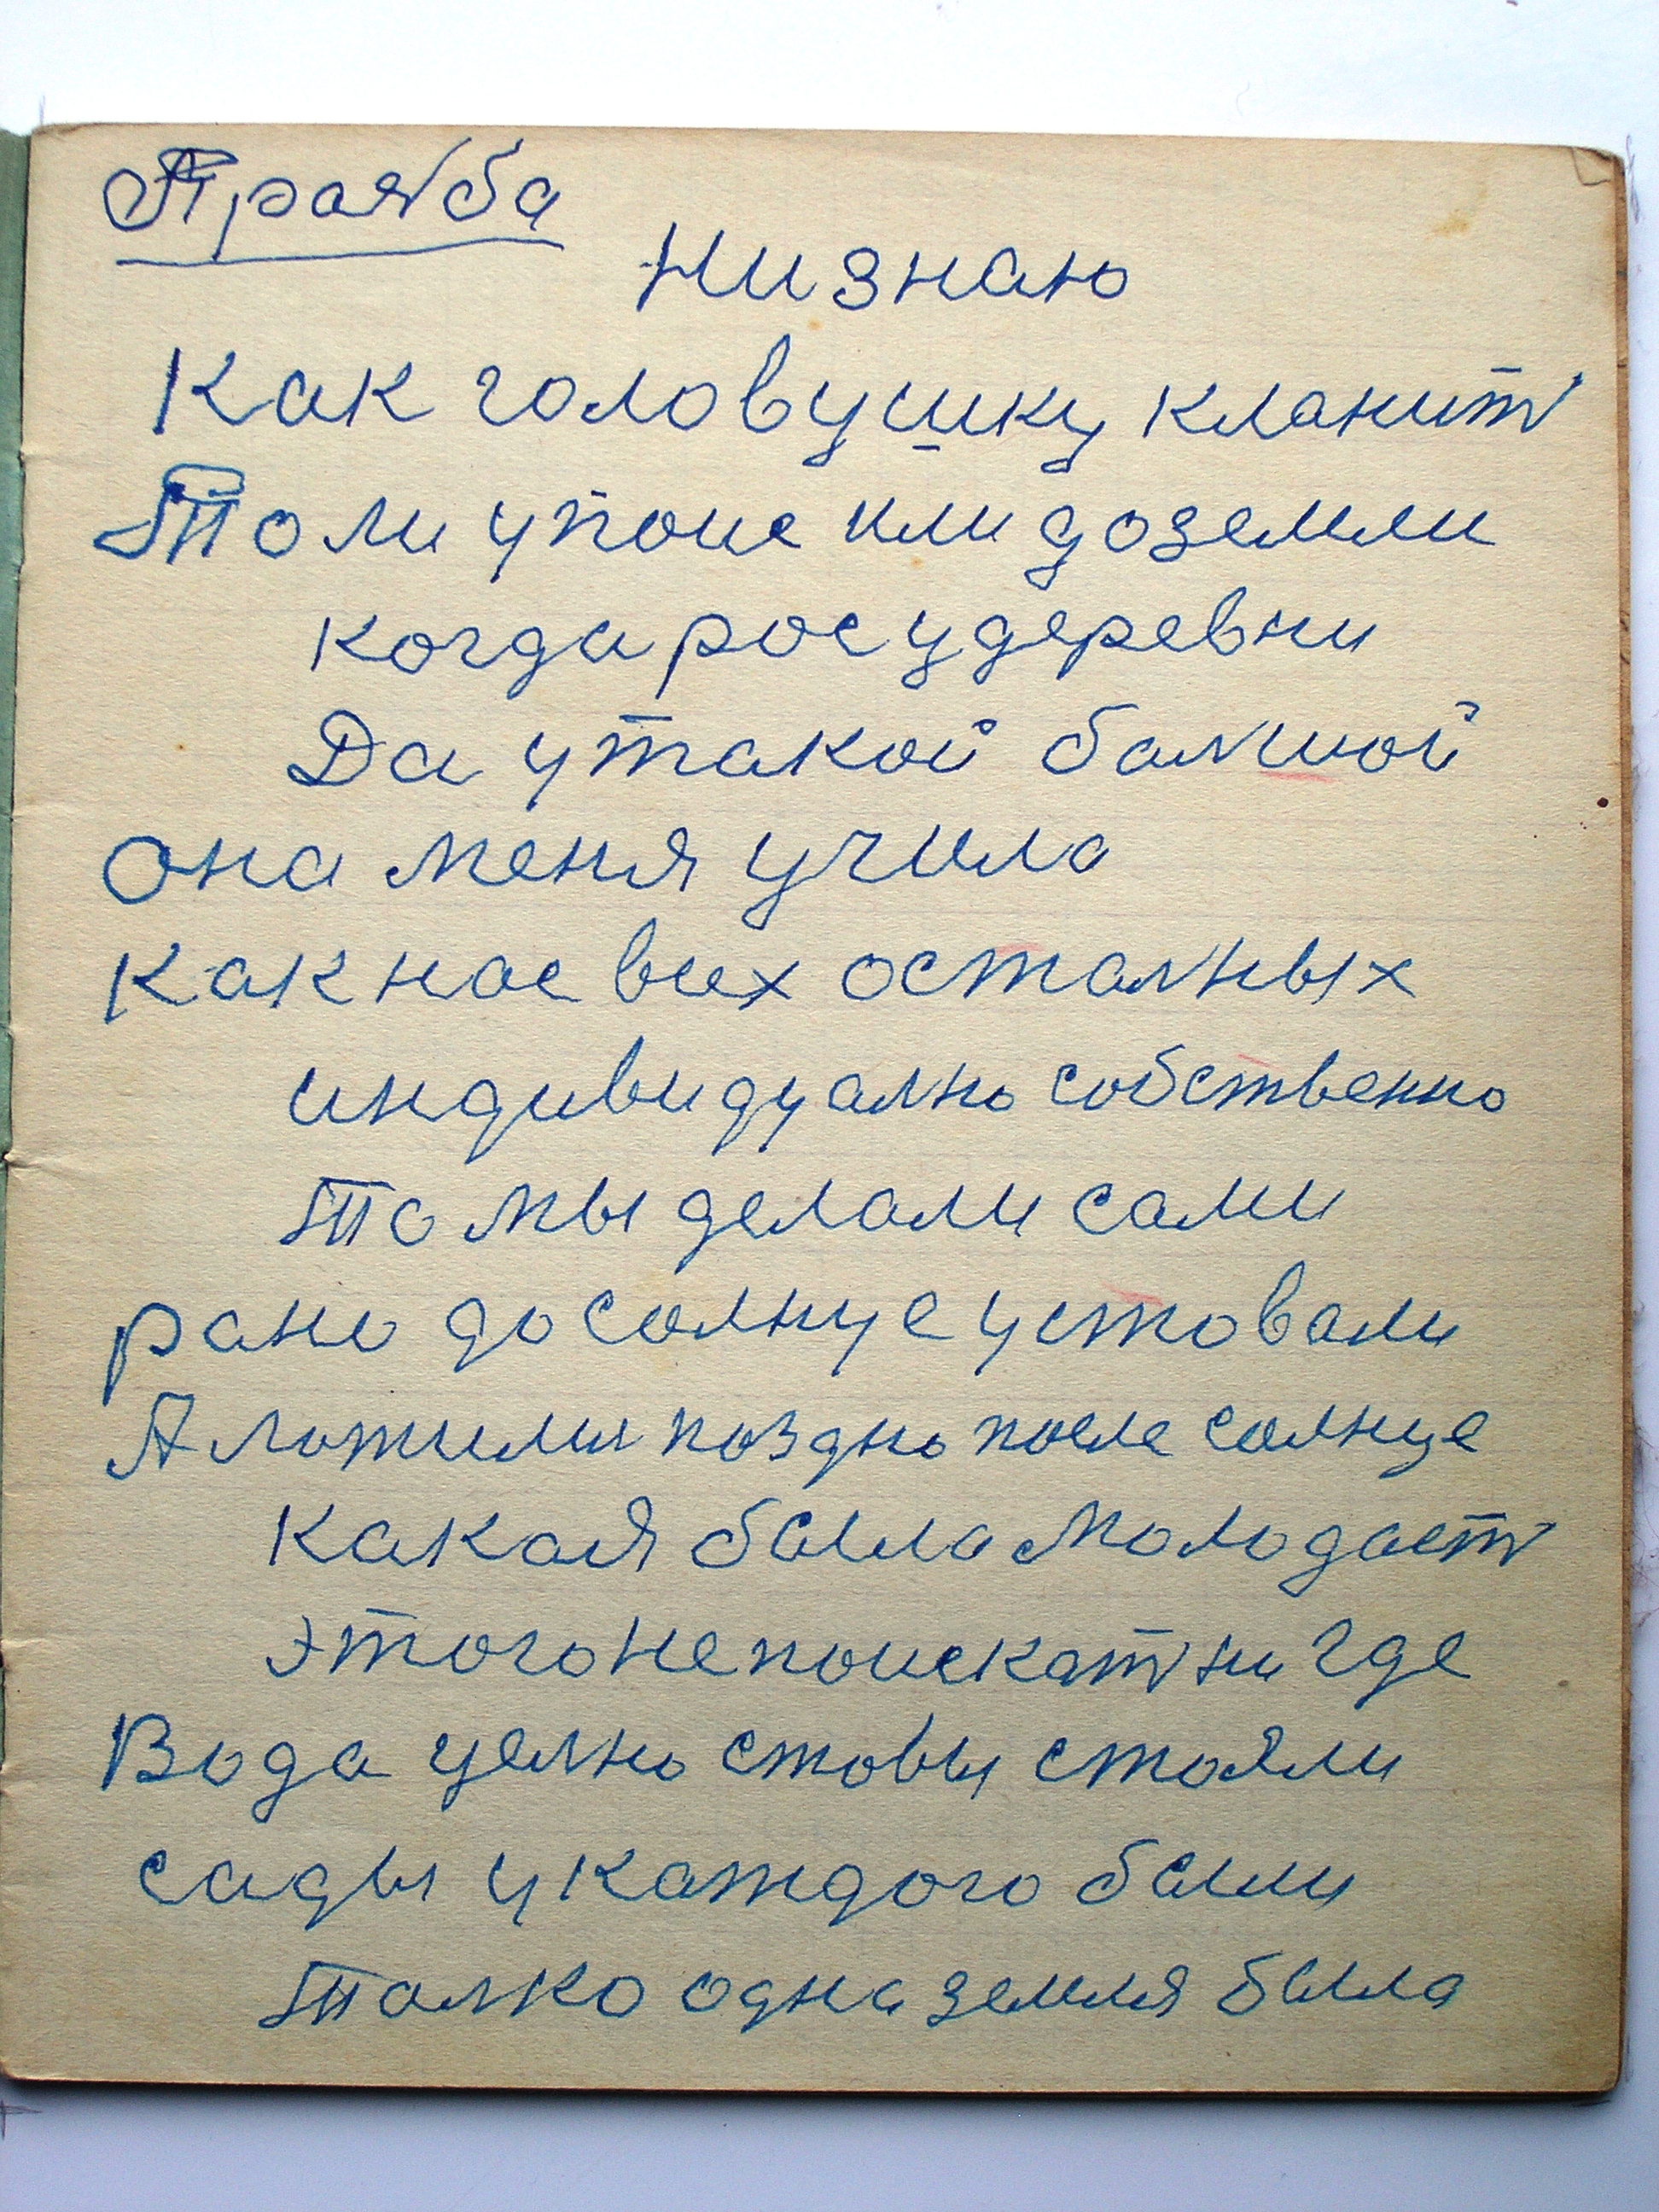 Праяба
Ни знаю
Как головушку кланит
Толи упоис или доземли
когда росу деревни
Да утакой балшой
Она меня учила
Как нас всих осталных
индивидуално собственно
То мы делали сами
рано досолнце уставали
А ложилис поздно после солнце
Какая была моладаст
этогоне поискат ни где
Вода целно ставы стояли
сады укаждого были
Толко одна земля была